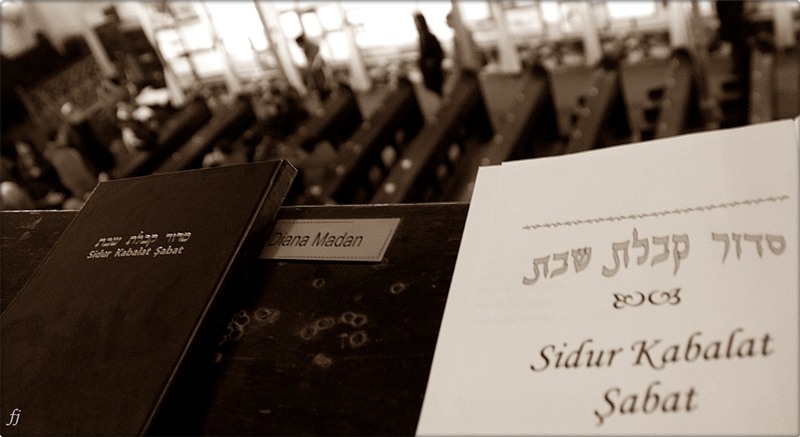 סדור קבלת שבת
Sidur Kabalat Şabat
Diana Madan
סדור קבלת שבת
Sidur Kabalat
Şabat
fj